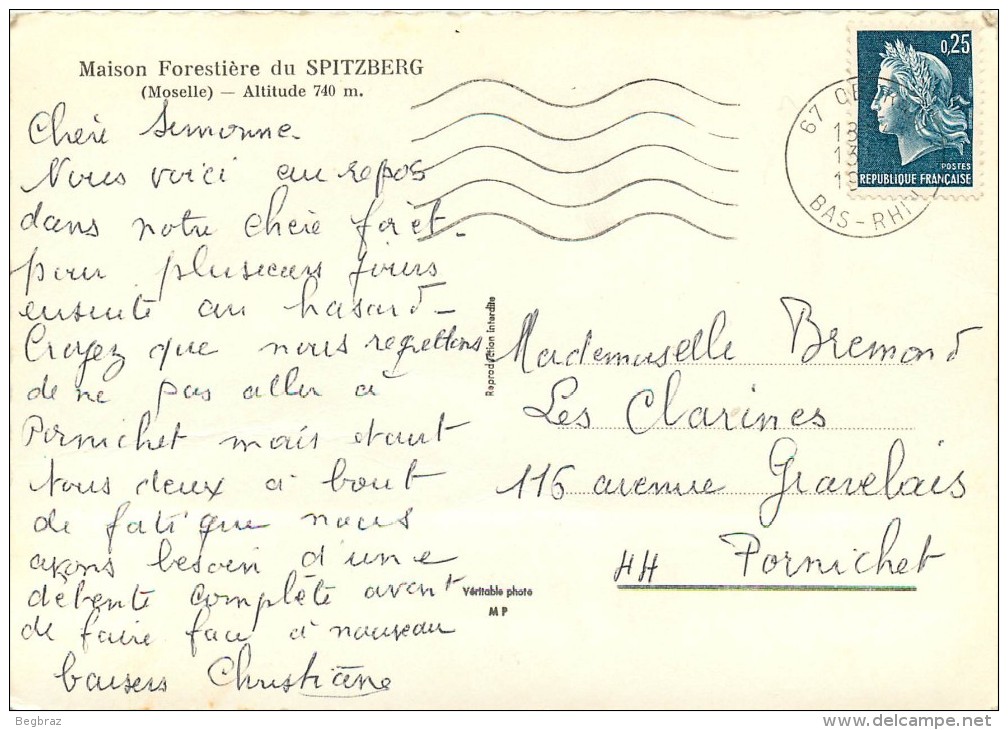 Maison Forestière du SPITZBERG
(Moselle) — Altitude 740 m.
Chère Simonne
Nous voici au repos
dans notre chère forêt_
pour plusieurs jours
ensuite au hasard_
Croyez que nous regrettons
de ne pas aller à
Pornichet mais étant
Nous deux à bout
de fatigue nous
avons besoin d'une
détente complète avant
de faire face à nouveau
baisers Christiane
Reproduction interdite
Véritable photo
MP
0,25
POSTES
REPUBLIQUE FRANÇAISE
67
BAS-RHIN
Mademoiselle Bremond
Les Clarines
116 avenue Gravelais
44 Pornichet
Begbraz
www.delcampe.net